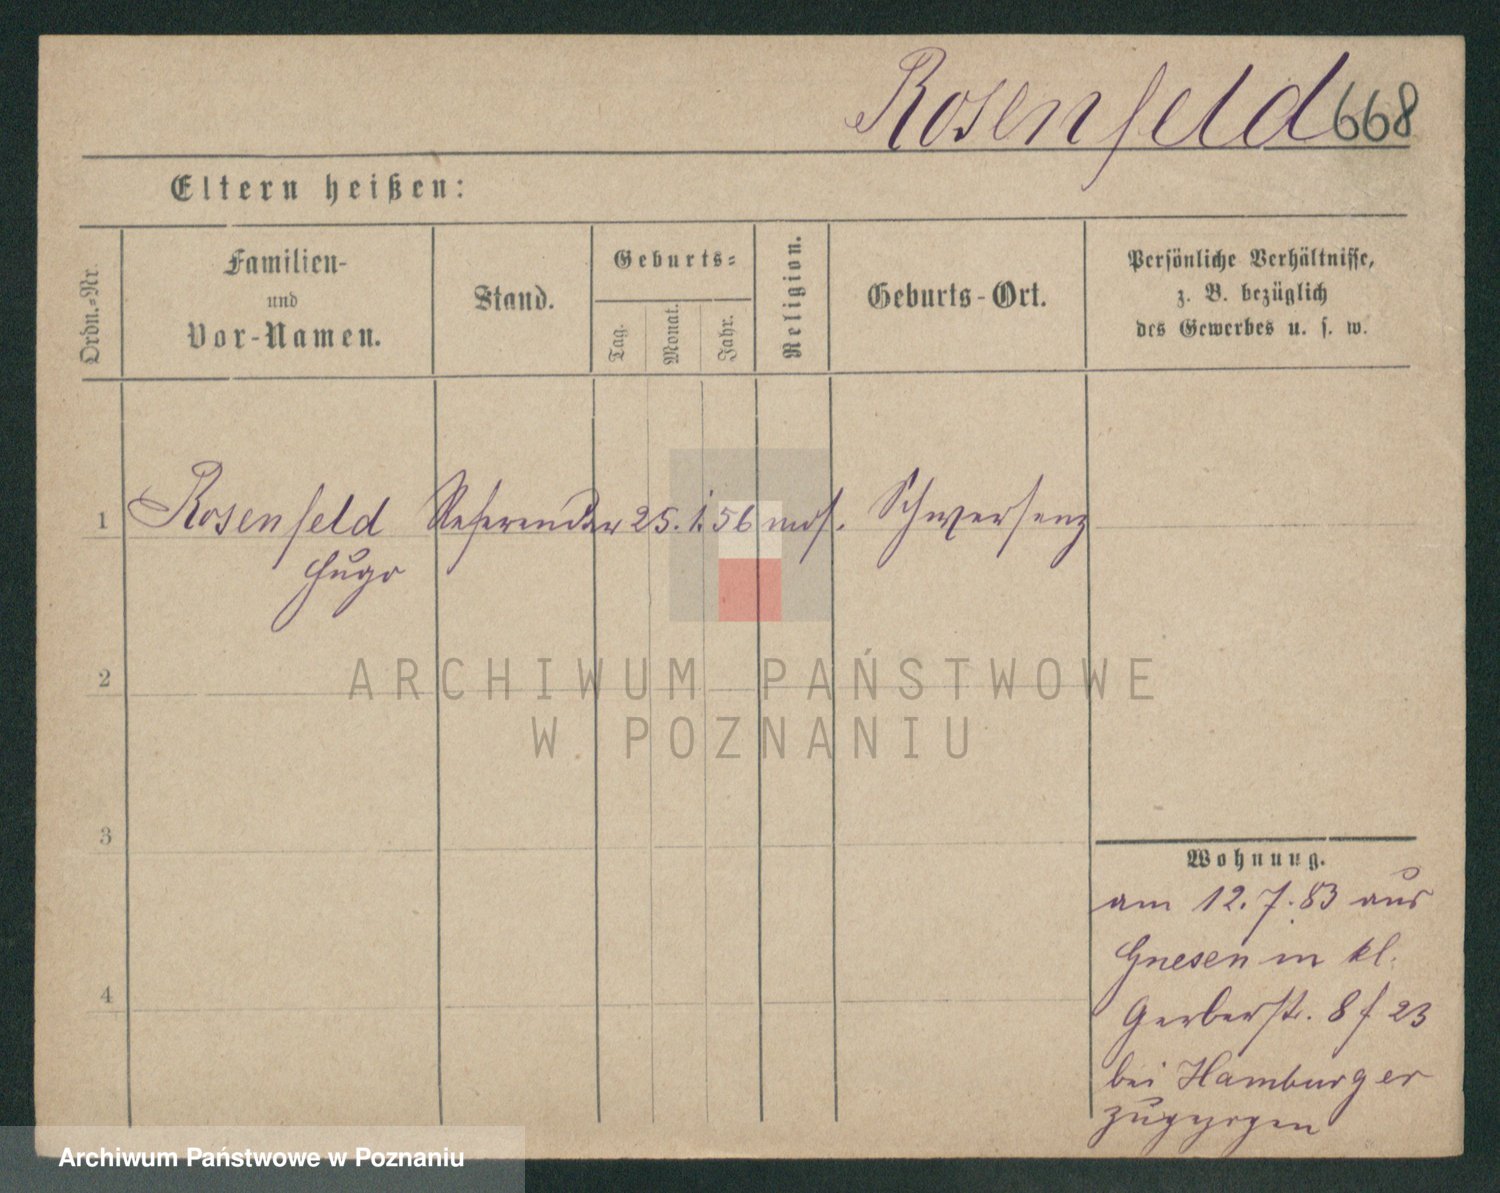 Rosenfeld 668
Eltern heißen:
Ordn.-Nr.
Familien-
und
Vor-Namen.
Stand.
Geburts-
Tag.
Monat.
Jahr.
Religion.
Geburts-Ort.
Persönliche Verhältnisse,
z. B. bezüglich
des Gewerbes u. s. w.
1 Rosenfeld Referendar 25. 1. 56 mos. Schwersenz
Hugo
2
3
4
Wohnung.
am 12. 7. 83 aus
Gnesen in kl.
Gerberst. 8 f 23
bei Hamburger
zugezogen
ARCHIWUM PAŃSTWOWE
W POZNANIU
Archiwum Państwowe w Poznaniu